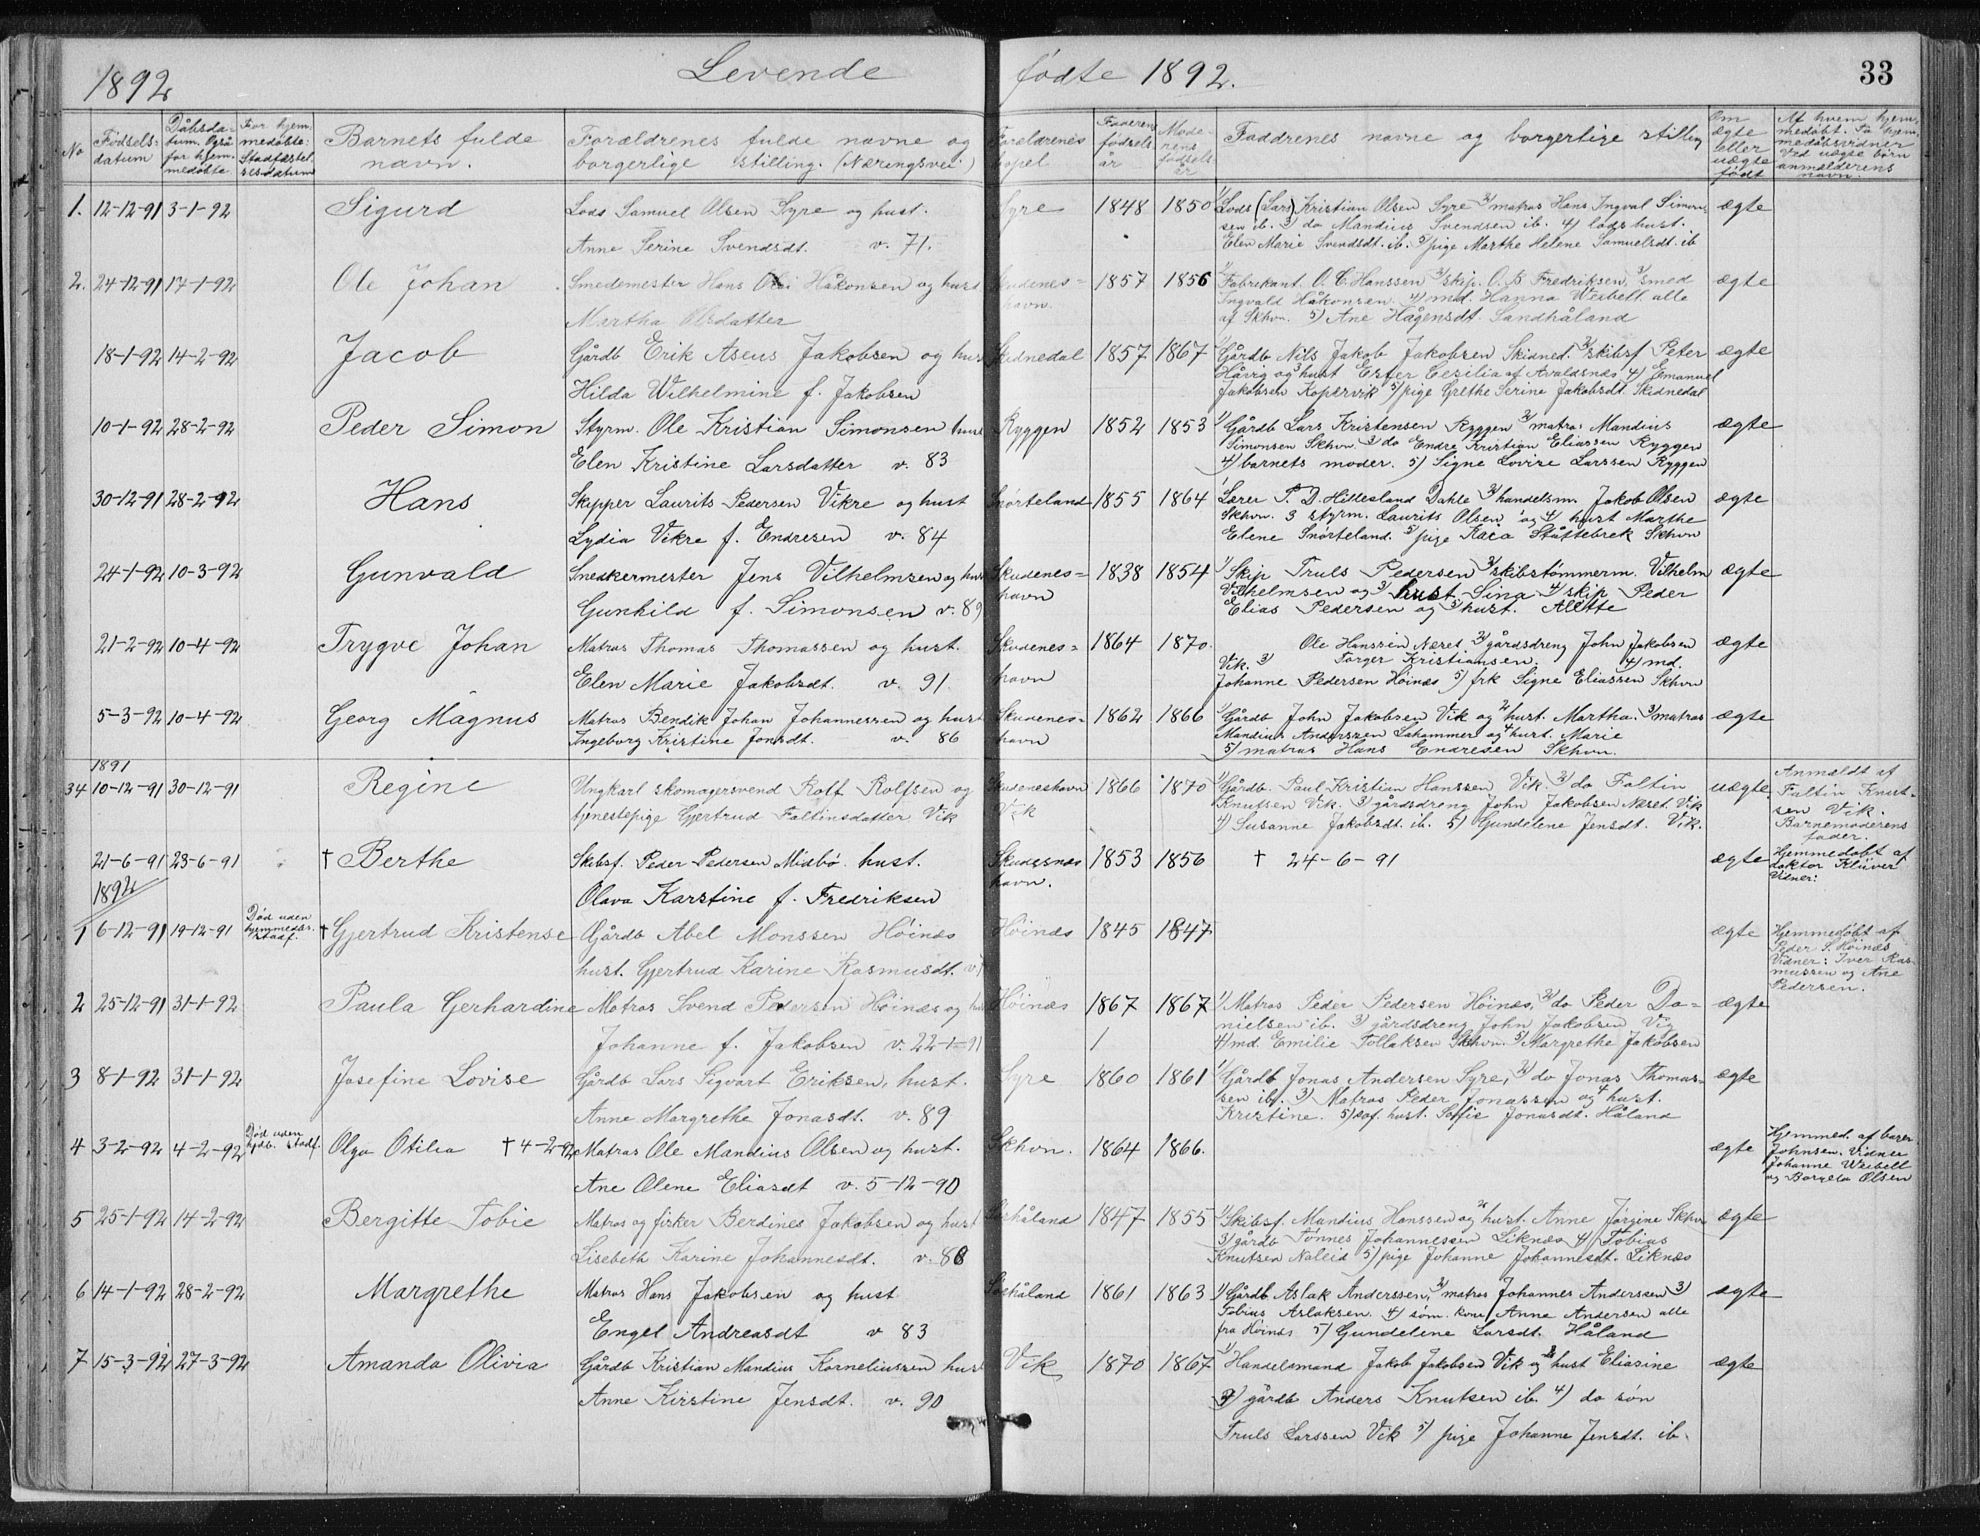 1892 Levende fødte 1892. 33
No Fødselsdatum Dåbsdatum. Også for hjemmedøbte For hjemmedøbte: Stadfæstelsesdatum Barnets fulde navn. Forældrenes fulde navne og borgerlige stilling. (Næringsvei) Forældrenes bopel Faderens fødselsår Moderens fødselsår Faddrenes navne og borgerlige stilling Om ægte eller uægte født Af hvem hjemmedøbt. To hjemmedåbsvidner Ved uægte børn anmelderens navn.
1. 12-12-91 3-1-92 Sigurd Lods Samuel Olsen Syre og hust. Syre 1848 1850 1) Lods (Lars) Kristian Olsen Syre 2) matros Hans Ingval Simon- ægte
sen ib. 3) do Mandius Svendsen ib. 4) lods hust.
Anne Serine Svendsdt. v. 71. Elen Marie Svendsdt. ib. 5) pige Marthe Helene Samuelsdt. ib
2. 24-12-91 17-1-92 Ole Johan Smedemester Hans Håkonsen og hust Skudenes- 1857 1856 1) Fabrikant O. C. Hanssen 2) skip. O. B Fredriksen, 3) smed ægte
havn. Ingvald Håkonsen. 4) md. Hanna Weibell alle
Martha Olsdatter af Skhvn. 5) Ane Hågensdt. Sandhåland
18-1-92 14-2-92 Jacob Gårdb Erik Aseus Jakobsen og hust Skidnedal 1857 1867 1) Gårdb Nils Jakob Jakobsen Skidned. 2) skibsf Peter ægte
Håvig og 3 hust Ester Cecilia af Avaldsnæs 4) Emanuel
Hilda Wilhelmine f. Jakobsen Jakobsen Kopervik 5) pige Grethe Serine Jakobsdt. Skidnedal
10-1-92 28-2-92 Peder Simon Styrm. Ole Kristian Simonsen hust Ryggen 1852 1853 1) Gårdb Lars Kristensen Ryggen 2) matro. Mandius ægte
Simonsen Skhvn. 3) do Endre Kristian Eliassen Ryggen
Elen Kristine Larsdatter v. 83 4) barnets moder. 5) Signe Lovise Larssen Ryggen
30-12-91 28-2-92 Hans Skipper Laurits Pedersen Vikre og hust Snørteland 1855 1864 1 Lærer P. D. Hillesland Dahle 2) handelsm. Jakob Olsen ægte
Skhvn. 3 styrm. Laurits Olsen og 4) hust Marthe
Lydia Vikre f. Endresen v. 84 Elene Snørteland. 5) pige Kaia Skhvn
24-1-92 10-3-92 Gunvald Snedkermester Jens Vilhelmsen og hust Skudenes- 1838 1854 1) Skip Truls Pedersen 2) skibstømmerm. Vilhelm ægte
havn Vilhelmsen og 3) hust Sina 4) skip Peder
Gunhild f. Simonsen v. 89 Elias Pedersen og 5) hust. Alette
21-2-92 10-4-92 Trygve Johan Matros Thomas Thomassen og hust. Skudenes- 1864 1870. Ole Hanssen Næret 2) gårdsdreng John Jakobsen ægte
Vik. 3) Torger Kristiansen. 4) md.
Elen Marie Jakobsdt. v. 91. havn Johanne Pedersen Høinæs 5) frk Signe Eliassen Skhvn
5-3-92 10-4-92 Georg Magnus Matros Bendik Johan Johannessen og hust Skudenes- 1862 1866 1) Gårdb John Jakobsen Vik og 2) hust. Martha. 3) matros ægte
Ingeborg Kristine Jonsdt. v. 86 havn Mandius Anderssen Lahammer og 4 hust. Marie
5) matros Hans Endresen Skhvn.
1891
34 10-12-91 30-12-91 Regine Ungkarl skomagersvend Rolf Rolfsen og Skudeneshavn 1866 1870 1) Gårdb. Paul Kristian Hanssen Vik. 2) do Faltin uægte Anmeldt af Faltin Knutsen Vik. Barnemoderens fader.
Knutsen Vik. 3) gårdsdreng John Jakobsen Næset. Vik
tjenestepige Gjertrud Faltinsdatter Vik Vik 4) Susanne Jakobsdt. ib. 5) Gundelene Jensdt. Vik.
21-6-91 23-6-91 † Berthe Skibsf. Peder Pedersen Midbø. hust. Skudesnæs 1853 1856 † 24-6-91 ægte Hjemmedøbt af doktor Klüver Vidner:
1892 Olava Karstine f. Fredriksen havn.
1 6-12-91 19-12-91 Død uden hjemmedåbs. stadf. † Gjertrud Kristense Gårdb Abel Monssen Høinæs Høinæs 1845 1847 ægte Hjemmedøbt af Peder S. Høinæs Vidner: Iver Rasmussen og Ane Pedersen.
hust. Gjertrud Karine Rasmusdt.
2 25-12-91 31-1-92 Paula Gerhardine Matros Svend Pedersen Høinæs og hust Høinæs 1867 1867 1) Matros Peder Pedersen Høinæs, 2) do Peder Da- ægte
nielsen ib. 3) gårdsdreng John Jakobsen Vig
Johanne f. Jakobsen v. 22-1-91 4) md. Emilie Tollaksen Skhvn. 5) Margrethe Jakobsen
3 8-1-92 31-1-92 Josefine Lovise Gårdb Lars Sigvart Eriksen, hust. Syre 1860 1861 1) Gårdb Jonas Andersen Syre, 2) do Jonas Thomas- ægte
sen ib. 3) Matros Peder Jonassen og 4 hust.
Anne Margrethe Jonasdt. v. 89 Kristine. 5) hust. Sofie Jonasdt. Håland
4 3-2-92 4-2-92 Død uden hjdb. stadf. Olga Otilia † 4-2-92 Matros Ole Mandius Olsen og hust. Skhvn. 1864 1866. ægte Hjemmed. af Johnsen. Vidner Johanne Weibell og Borgela Olsen
Ane Olene Eliasdt v. 5-12-90
5 25-1-92 14-2-92 Bergitte Tobie Matros og fisker Berdines Jakobsen og hust Søskåland 1847 1855 1) Skibsf. Mandius Hanssen og 2) hust. Anne Jørgine Skhvn ægte
3) gårdb Tønnes Johannessen Liknæs 4) Tobias
Lisebeth Karine Johannesdt. v. 8 Knutsen Naleid 5) pige Johanne Johannesdt. Liknæs
6 14-1-92 28-2-92 Margrethe Matros Hans Jakobsen og hust Søskåland 1861 1863 1) Gårdb. Aslak Anderssen, 2) matros Johannes Anderssen 3) ægte
Tobias Aslaksen. 4) søm. kone Anne Andersen alle
Engel Andreasdt v 83 fra Høinæs 5) Gundelene Larsdt. Håland
7 15-3-92 27-3-92 Amanda Olivia Gårdb Kristian Mandius Korneliussen hust Vik 1870 1867 1) Handelsmand Jakob Jakobsen Vik og 2) hust Eliasine ægte
Anne Kirstine Jensdt. v. 90 3) gårdb Anders Knutsen ib. 4) do søn
Truls Larssen Vik 5) pige Johanne Jensdt. ib.